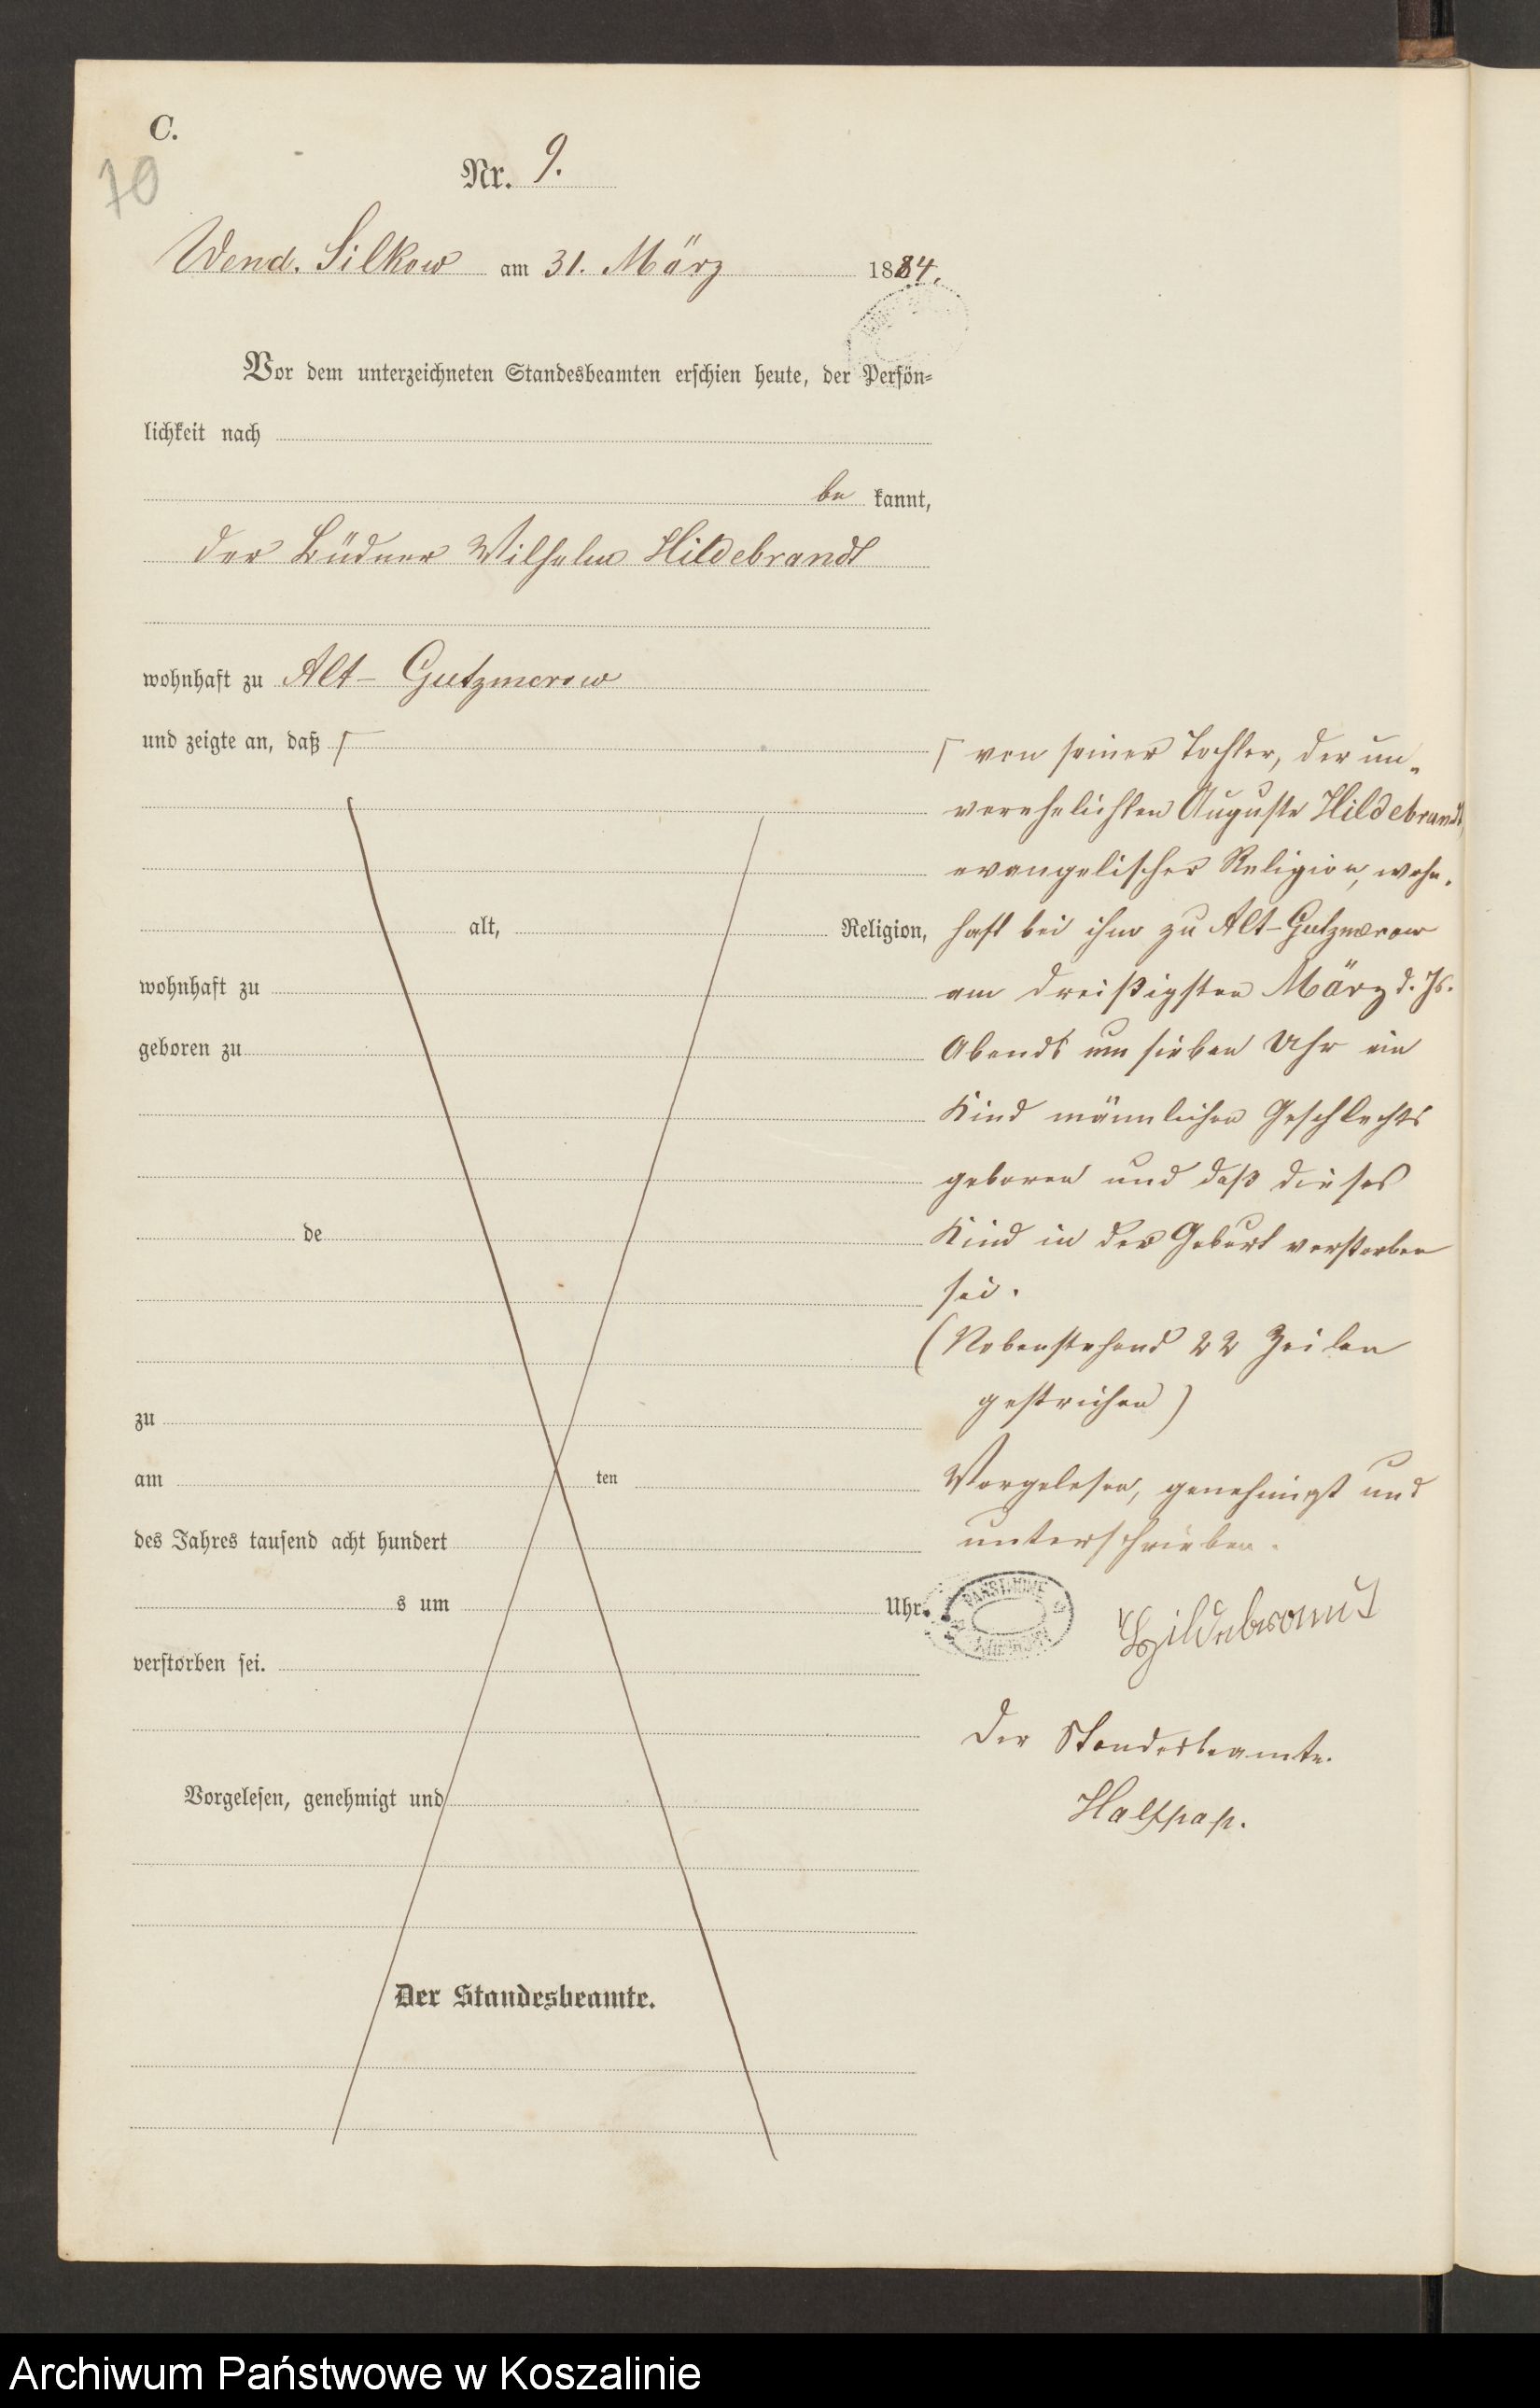 C.
70
Nr. 9.
Wend. Silkow am 31. März 1884.
Vor dem unterzeichneten Standesbeamten erschien heute, der Persön-
lichkeit nach
be kannt,
der Büdner Wilhelm Hildebrandt
wohnhaft zu Alt-Gutzmerow
und zeigte an, daß ⌈
⌈ von seiner Tochter, der un-
verehelichten Auguste Hildebrandt,
evangelischer Religion, wohn-
haft bei ihm zu Alt-Gutzmerow
am dreißigsten März d. Js.
Abends um sieben Uhr ein
Kind männlichen Geschlechts
geboren und daß dieses
Kind in der Geburt verstorben
sei.
(Nebenstehend 22 Zeilen
gestrichen)
Vorgelesen, genehmigt und
unterschrieben.
Hildebrandt
Der Standesbeamte.
Halfpap.
alt, Religion,
wohnhaft zu
geboren zu
de
zu
am ten
des Jahres tausend acht hundert
s um Uhr.
verstorben sei.
Vorgelesen, genehmigt und
Der Standesbeamte.
Archiwum Państwowe w Koszalinie